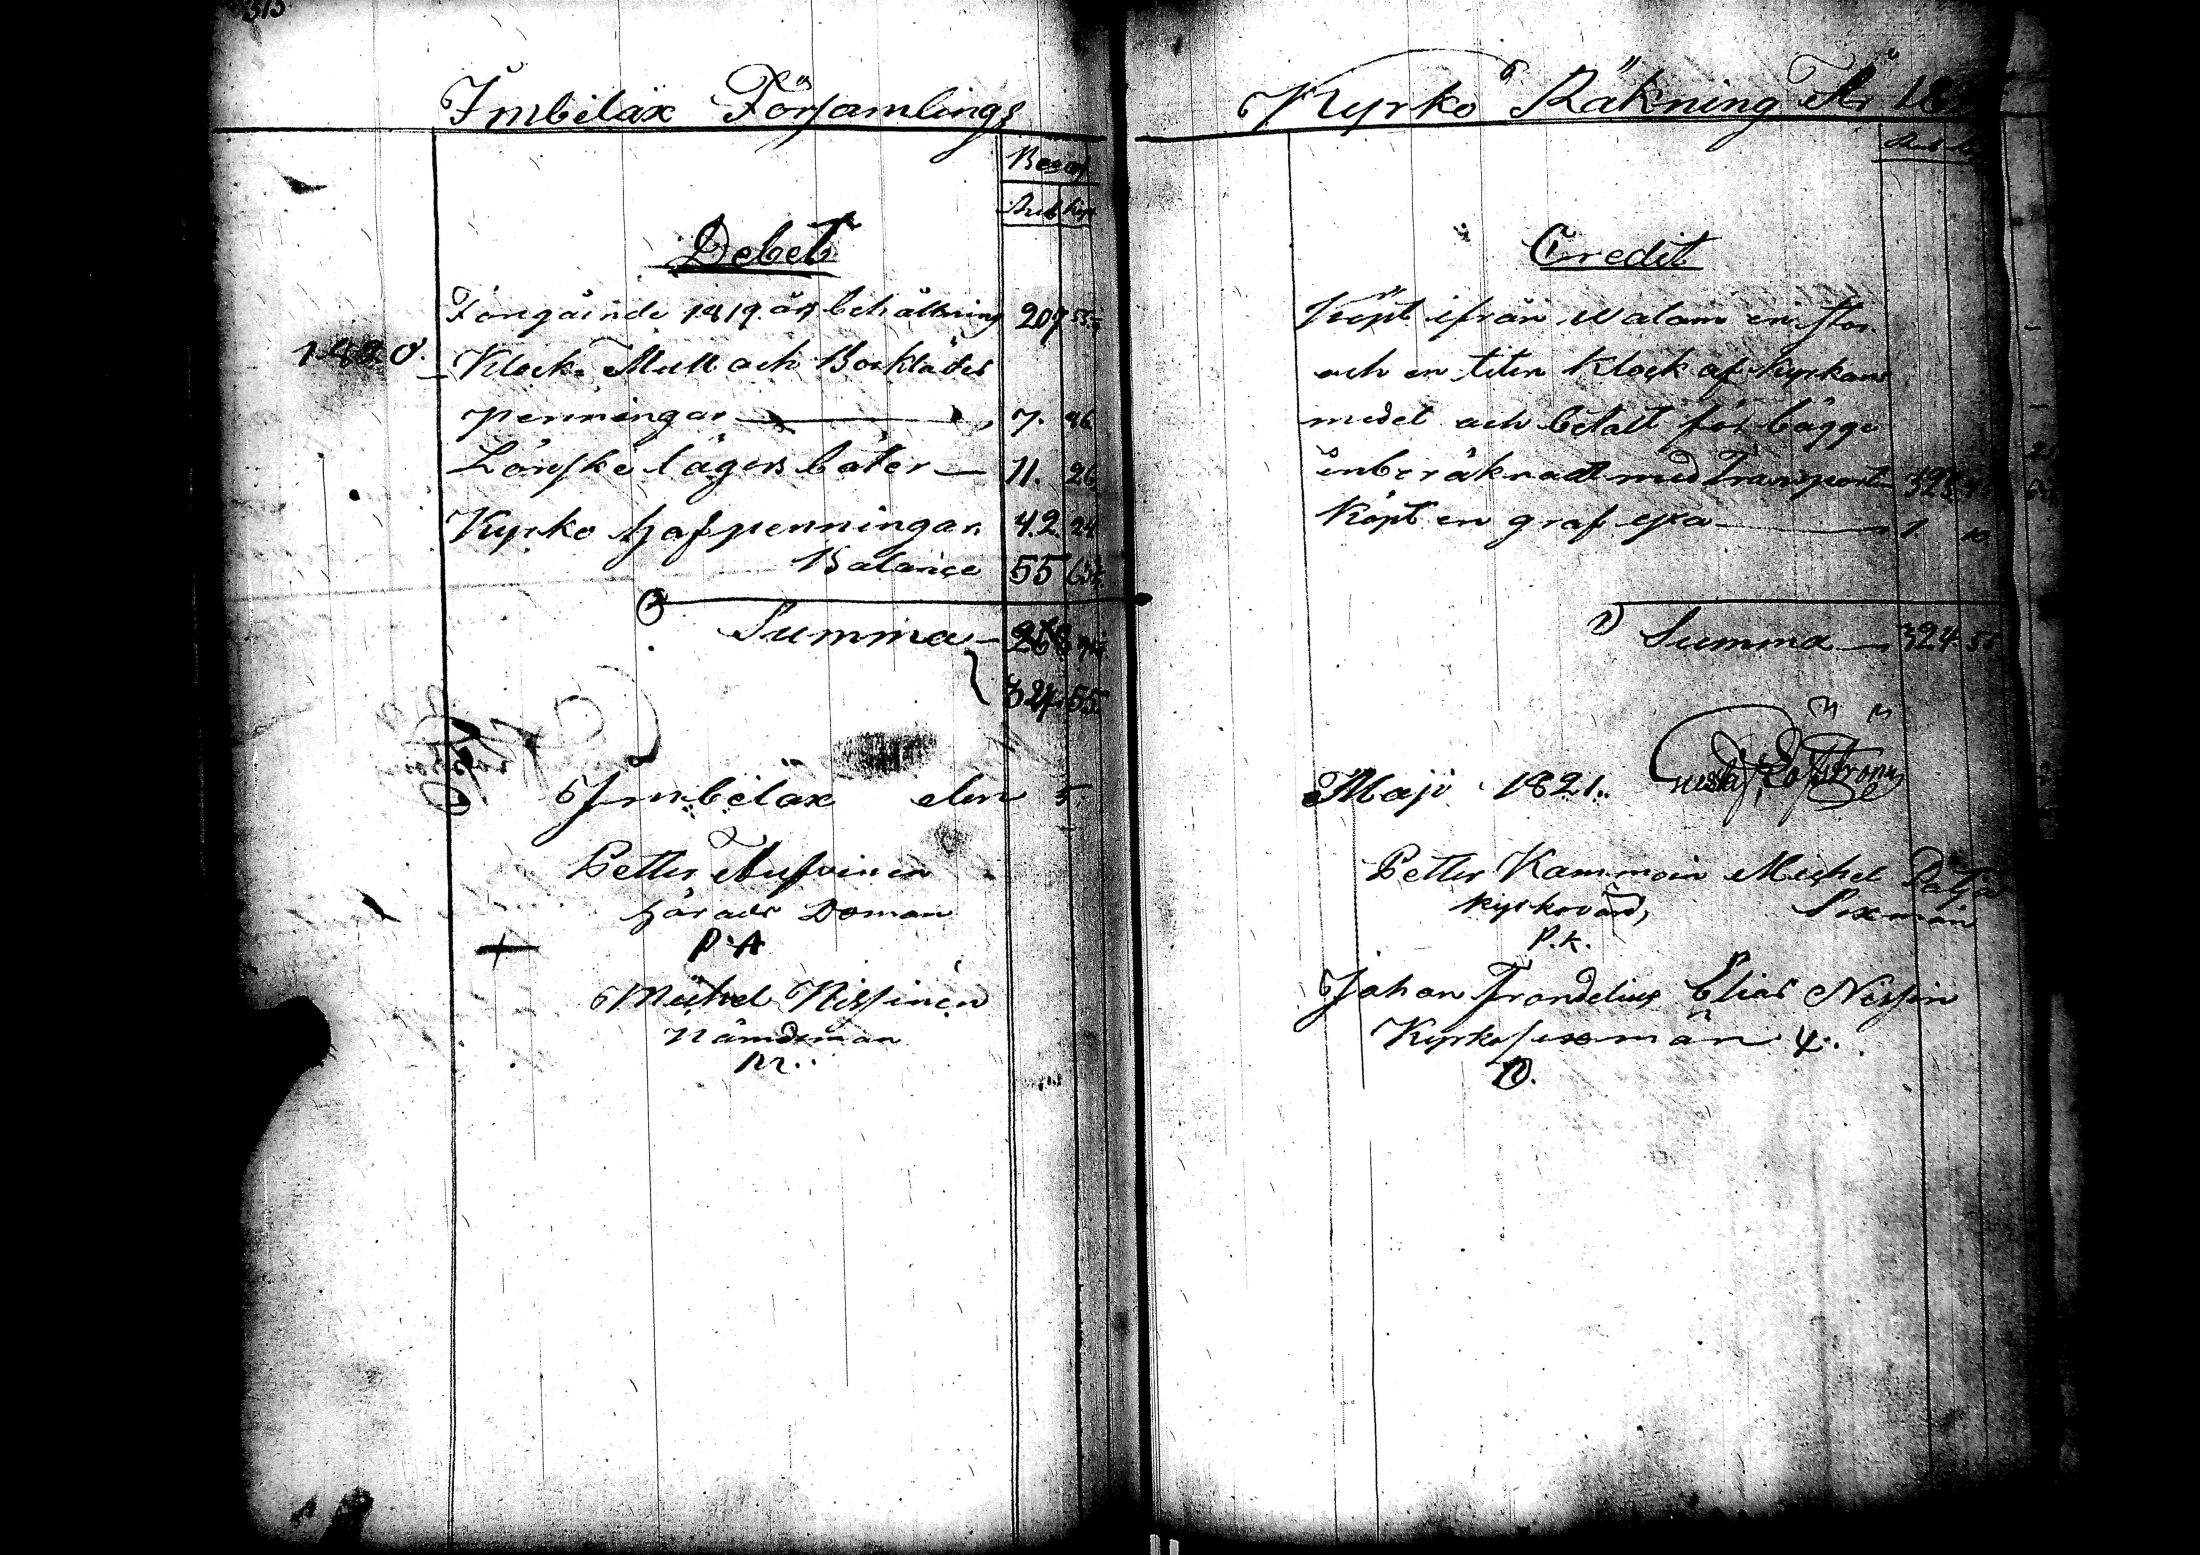 Imbilax Församlings
Debet
Föregåinde 1819. års behåltning 207
1820. Klock. Mull och Borklädes
penningar 7. 46
Lönske lägers båter 11. 26
Kyrko hafpenningar 42. 24
Balance 55
Summa 268
324. 55
Imbilax den 5.
Petter
härads Doman
P.A
Michel Nissinen
Nämdeman
Kyrko Räkning År
Credit
Köpt ifrån Walamo en stor
och en liten Klock af kyrkans
medel och betalt för bägge
inberäknadt med Transporten 323
Köpt en graf yxa 1.
Summa 324 55
Maji 1821. Gustaf
Petter Kammoin Michel
kyrkovärd, Sexman
P.K.
Johan Frondelius Elias Nissin
Kyrkosexmän